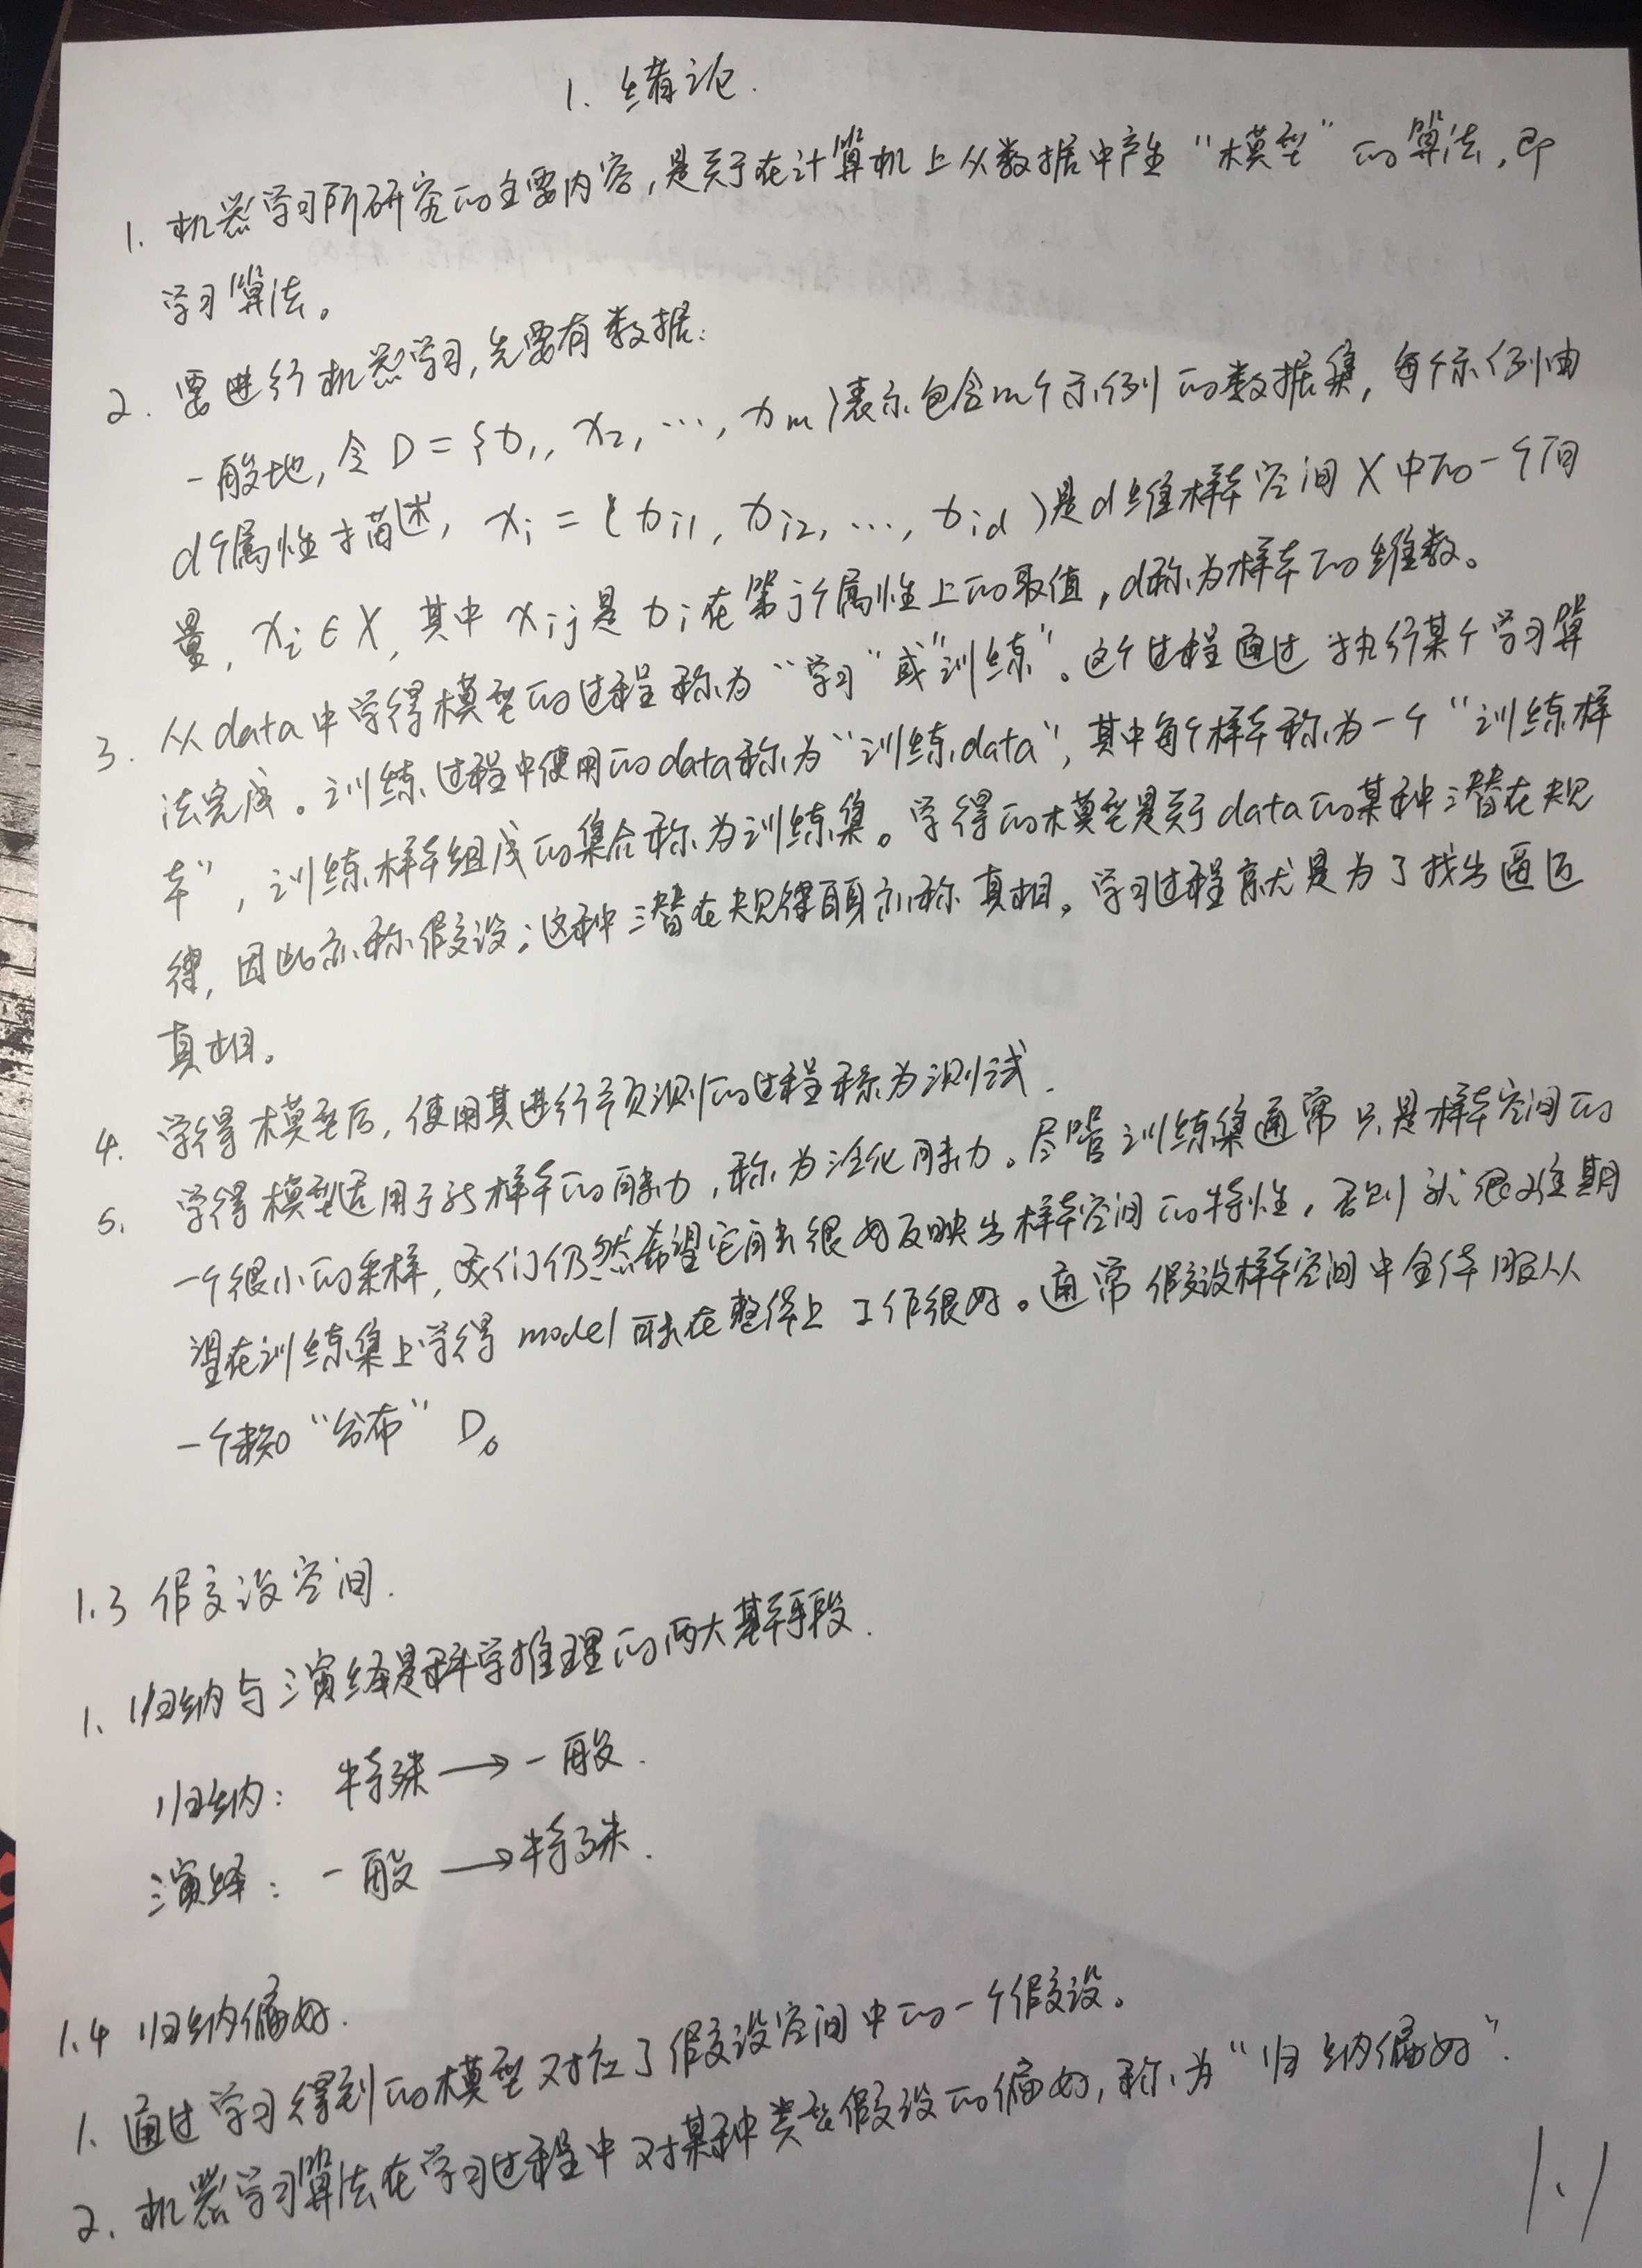 1. 绪论.
1. 机器学习所研究的主要内容,是关于在计算机上从数据中产生“模型”的算法,即
学习算法。
2. 要进行机器学习,先要有数据:
一般地,令 D = {x1, x2, …, xm}表示包含m个示例的数据集,每个示例由
d个属性描述, xi = (xi1, xi2, …, xid)是d维样本空间X中的一个向
量, xi ∈ X, 其中 xij 是 xi 在第j个属性上的取值,d称为样本的维数。
3. 从data中学得模型的过程称为“学习”或“训练”。这个过程通过执行某个学习算
法完成。训练过程中使用的data称为“训练data”,其中每个样本称为一个“训练样
本”,训练样本组成的集合称为训练集。学得的模型是关于data的某种潜在规
律,因此亦称假设;这种潜在规律自身亦称真相。学习过程就是为了找出逼近
真相。
4. 学得模型后,使用其进行预测的过程称为测试.
5. 学得模型适用于新样本的能力,称为泛化能力。尽管训练集通常只是样本空间的
一个很小的采样,我们仍然希望它能很好反映出样本空间的特性,否则就很难期
望在训练集上学得model能在整体上工作很好。通常假设样本空间中全体服从
一个未知“分布” D。
1.3 假设空间.
1. 归纳与演绎是科学推理的两大基本手段.
归纳: 特殊 → 一般.
演绎: 一般 → 特殊.
1.4 归纳偏好.
1. 通过学习得到的模型对应了假设空间中的一个假设。
2. 机器学习算法在学习过程中对某种类型假设的偏好,称为“归纳偏好”.
1.1